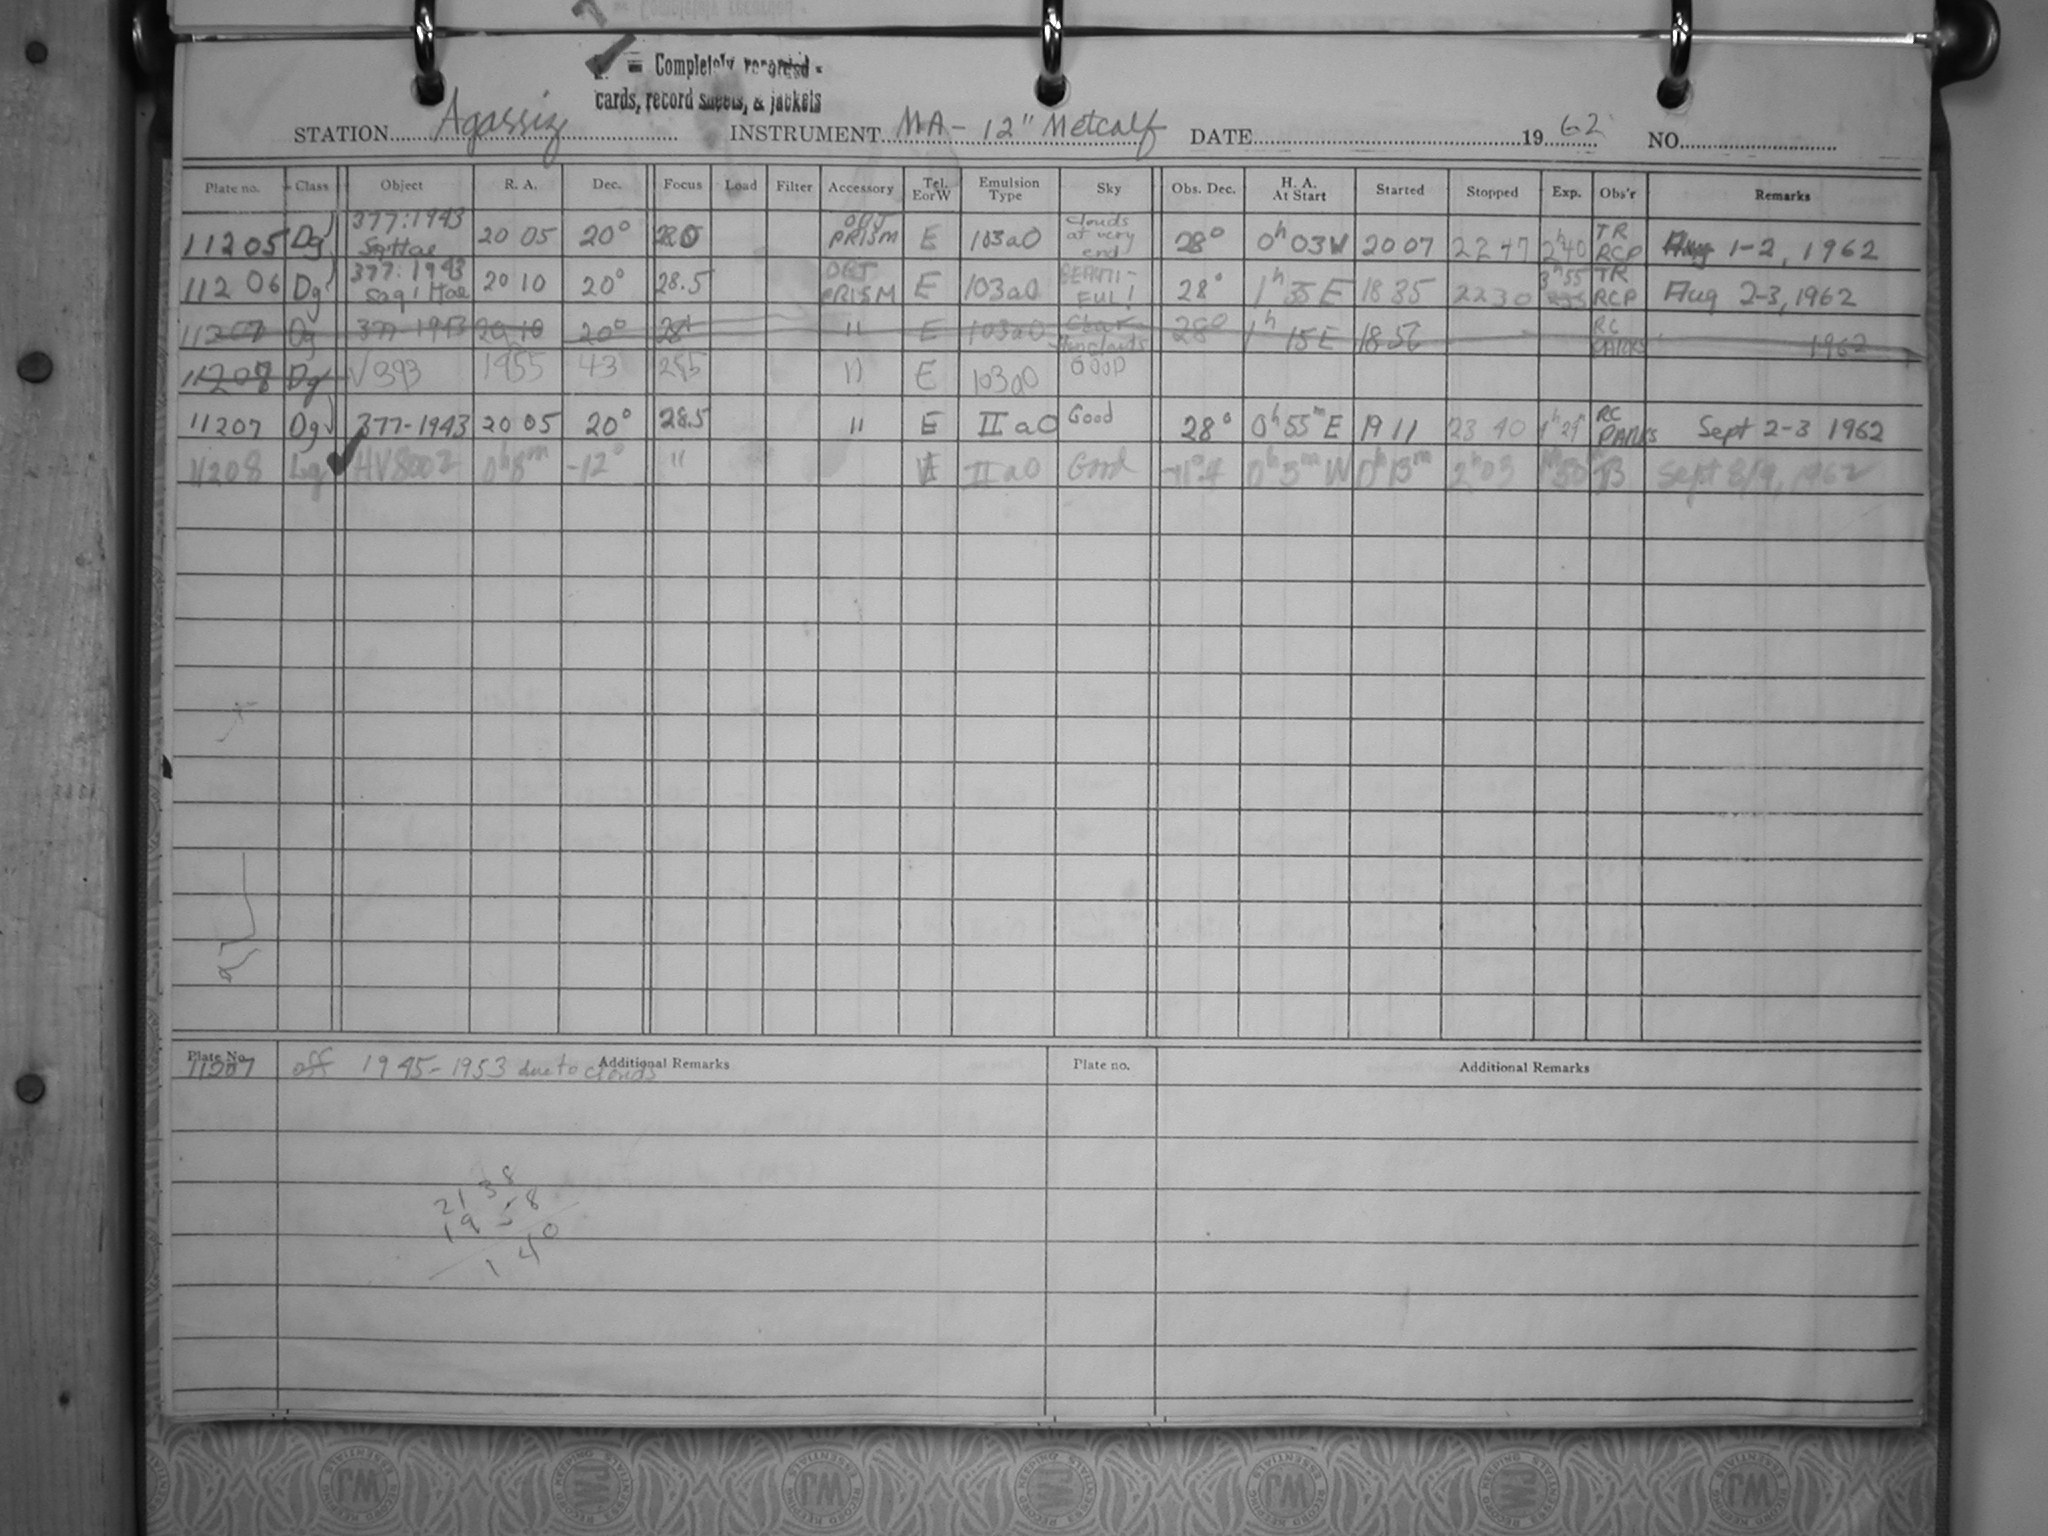 = Completely recorded -
cards, record sheets, & jackets
STATION Agassiz INSTRUMENT MA - 12" Metcalf DATE 1962 NO.
Plate no. Class Object R. A. Dec. Focus Load Filter Accessory Tel. EorW Emulsion Type Sky Obs. Dec. H. A. At Start Started Stopped Exp. Obs'r Remarks
11205 Dg 377:1943 Sagittae 20 05 20° 28.0 OBJ PRISM E 103aO clouds at very end 28° 0h 03W 20 07 22 47 2h40 TR RCP Aug 1-2, 1962
11206 Dg 377:1943 Sagittae 20 10 20° 28.5 OBJ PRISM E 103aO BEAUTI-FUL! 28° 1h 35 E 18 35 22 30 3h55 TR RCP Aug 2-3, 1962
11207 Dg 377-1943 20 10 20° 28 " E 103aO 28° 1h 15 E 18 56 RC PARKS 1962
11208 Dg √393 1955 43 285 " E 103aO GOOD
11207 Dg 377-1943 20 05 20° 28.5 " E II aO Good 28° 0h 55m E 19 11 23 40 RC PARKS Sept 2-3 1962
11208 HV8002 0h8m -12° " II aO Good 0h 5m W 0h 13m 2h03 Sept 8/9, 1962
Plate No. Additional Remarks Plate no. Additional Remarks
11207 off 1945-1953 due to clouds
21 38
19 58
1 40